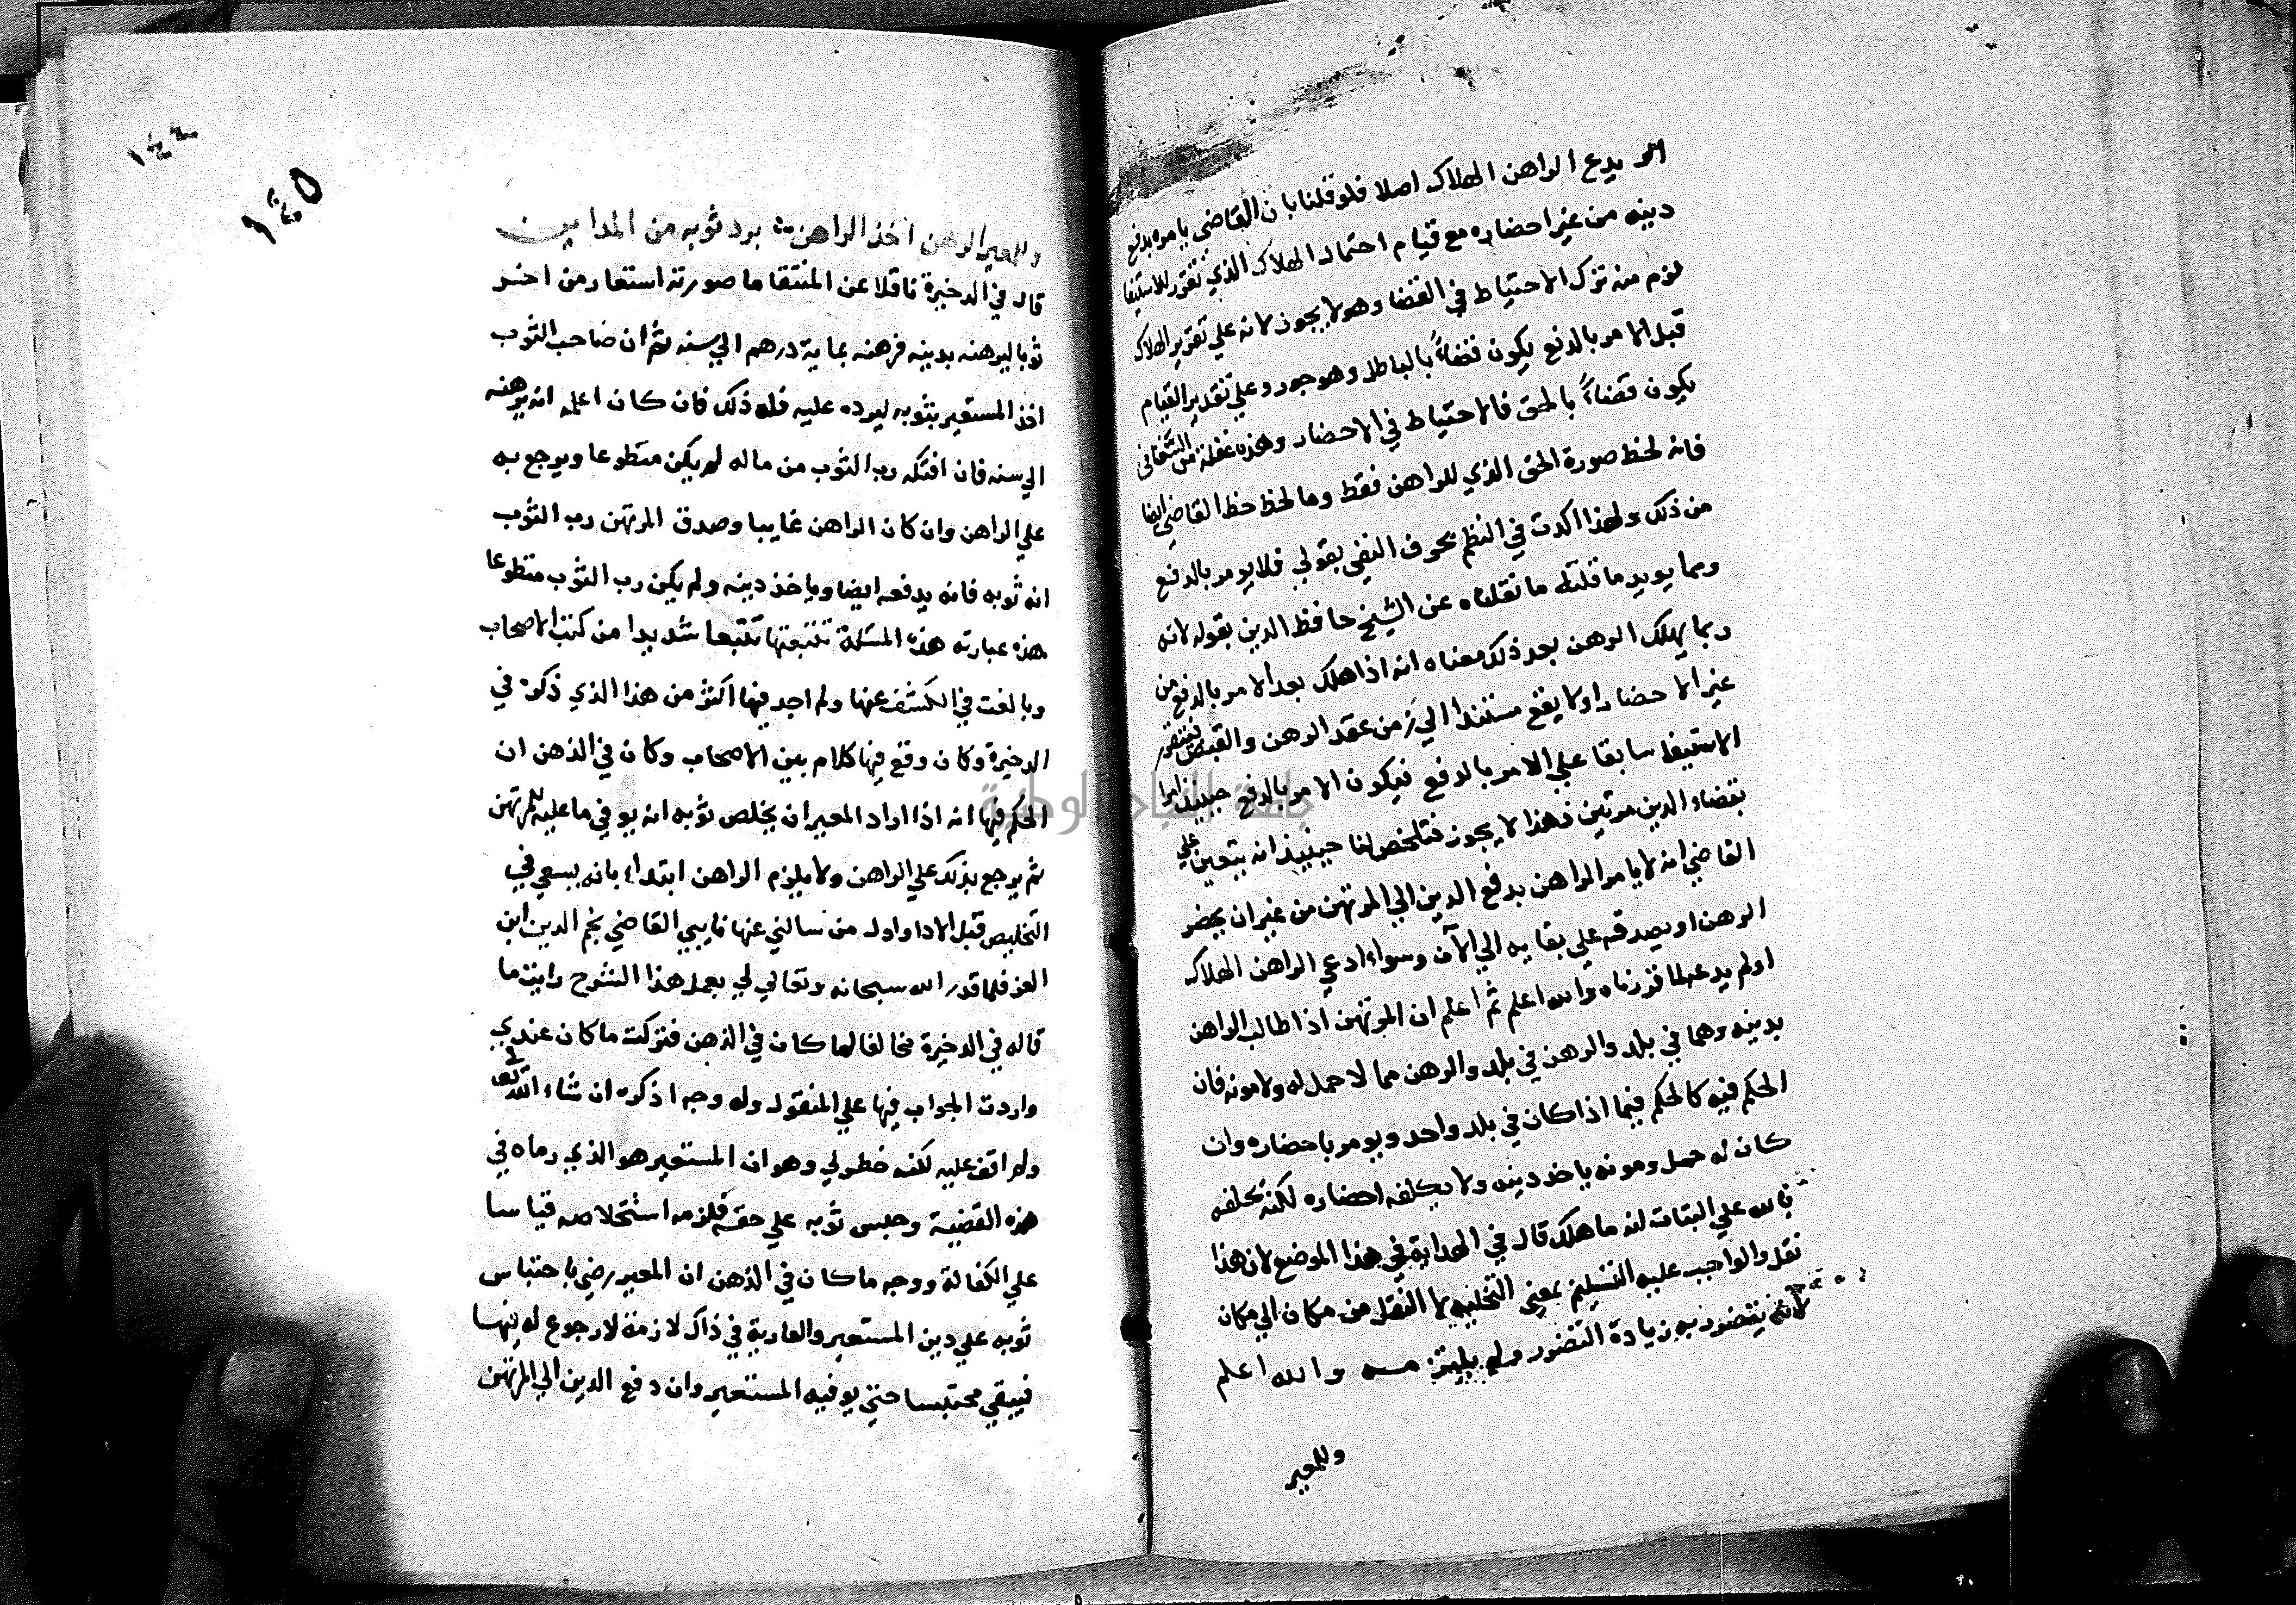 لم يدع الراهن الهلاك اصلا فلو قلنا بان القاضي يامره بدفع
دينه من غير احضاره مع قيام احتمال الهلاك الذي تقرر للاستيفا
لزم منه ترك الاحتياط في القضا وهو لا يجوز لانه علي تقرير الهلاك
قبل الامر بالدفع يكون قضاءً بالباطل وهو جور وعلي تقدير القيام
يكون قضاءً بالحق فالاحتياط في الاحضار وهذه غفلة من
فانه لحظ صورة الحق الذي للراهن فقط وما لحظ حظ القاضي ايضا
من ذلك ولهذا اكدت في النظم بحرف النفي بقولي فلا يومر بالدفع
ومما يويد ما قلته ما نقلناه عن الشيخ حافظ الدين بقوله لانه
ربما يهلك الرهن بعد ذلك معناه انه اذا هلك بعد الامر بالدفع من
غير الاحضار اولا يقع مستندا الي زمن عقد الرهن والقبض فيتقرر
الاستيفا سابقا علي الامر بالدفع فيكون الامر بالدفع حينيذ امرا
بقضاء الدين مرتين فهذا لا يجوز فتلخص لنا حينيذ انه يتعين علي
القاضي انه لا يامر الراهن بدفع الدين الي المرتهن من غير ان يحضر
الرهن او يصدقه علي بقايه الي الآن وسواء ادعي الراهن الهلاك
اولم يدع لما قررناه والله اعلم ثم اعلم ان المرتهن اذا طالب الراهن
بدينه وهما في بلد والرهن في بلد والرهن مما لا حمل له ولا مونه فان
الحكم فيه كالحكم فيما اذا كان في بلد واحد ويومر باحضاره وان
كان له حمل ومونه ياخذ دينه ولا يكلفه احضاره لكنه يحلفه
بالله علي البتات انه ما هلك قال في الهداية في هذا الموضع لان هذا
نقل والواجب عليه التسليم بمعني التخليه لا النقل من مكان الي مكان
لانه يتضرر به زيادة التضرر ولم يلتزمه والله اعلم
وللمعير
١٤٤
١٤٥
وللمعير الرهن اخذ الراهن برد ثوبه من المداين
قال في الدخيرة ناقلا عن المنتقا ما صورته استعار من اخر
ثوبا ليرهنه بدينه فرهنه بماية درهم الي سنه ثم ان صاحب الثوب
اخذ المستعير بثوبه ليرده عليه فله ذلك فان كان اعلمه انه يرهنه
الي سنه فان افتكه رب الثوب من ماله لم يكن متطوعا ويرجع به
علي الراهن وان كان الراهن غايبا وصدق المرتهن رب الثوب
انه ثوبه فانه يدفعه ايضا وياخذ دينه ولم يكن رب الثوب متطوعا
هذه عبارته هذه المسئلة تتبعتها تتبعا شديدا من كتب الاصحاب
وبالغت في الكشف عنها ولم اجد فيها اكثر من هذا الذي ذكره في
الدخيرة وكان وقع فيها كلام بين الاصحاب وكان في الذهن ان
الحكم فيها انه اذا اراد المعير ان يخلص ثوبه انه يوفي ما عليه للمرتهن
ثم يرجع بذلك علي الراهن ولا يلزم الراهن ابتداء بانه يسعي في
التخليص قبل الادا واول من سالني عنها نايبي القاضي نجم الدين ابن
العز فلما قدر الله سبحانه وتعالي لي بعمل هذا الشرح رايت ما
قاله في الدخيرة مخالفا لما كان في الذهن فتركت ما كان عندي
واردت الجواب فيها علي المنقول وله وجه اذكره ان شاء الله تعالي
ولم اقف عليه لكنه خطر لي وهو ان المستعير هو الذي رماه في
هذه القضية وحبس ثوبه علي حقه فلزمه استخلاصه قياسا
علي الكفالة ووجه ما كان في الذهن ان المعير رضي باحتباس
ثوبه علي دين المستعير والعارية في ذاك لازمة لا رجوع له فيها
فيبقي محتبسا حتي يوفيه المستعير وان دفع الدين الي المرتهن
جامعة النجاح الوطنية